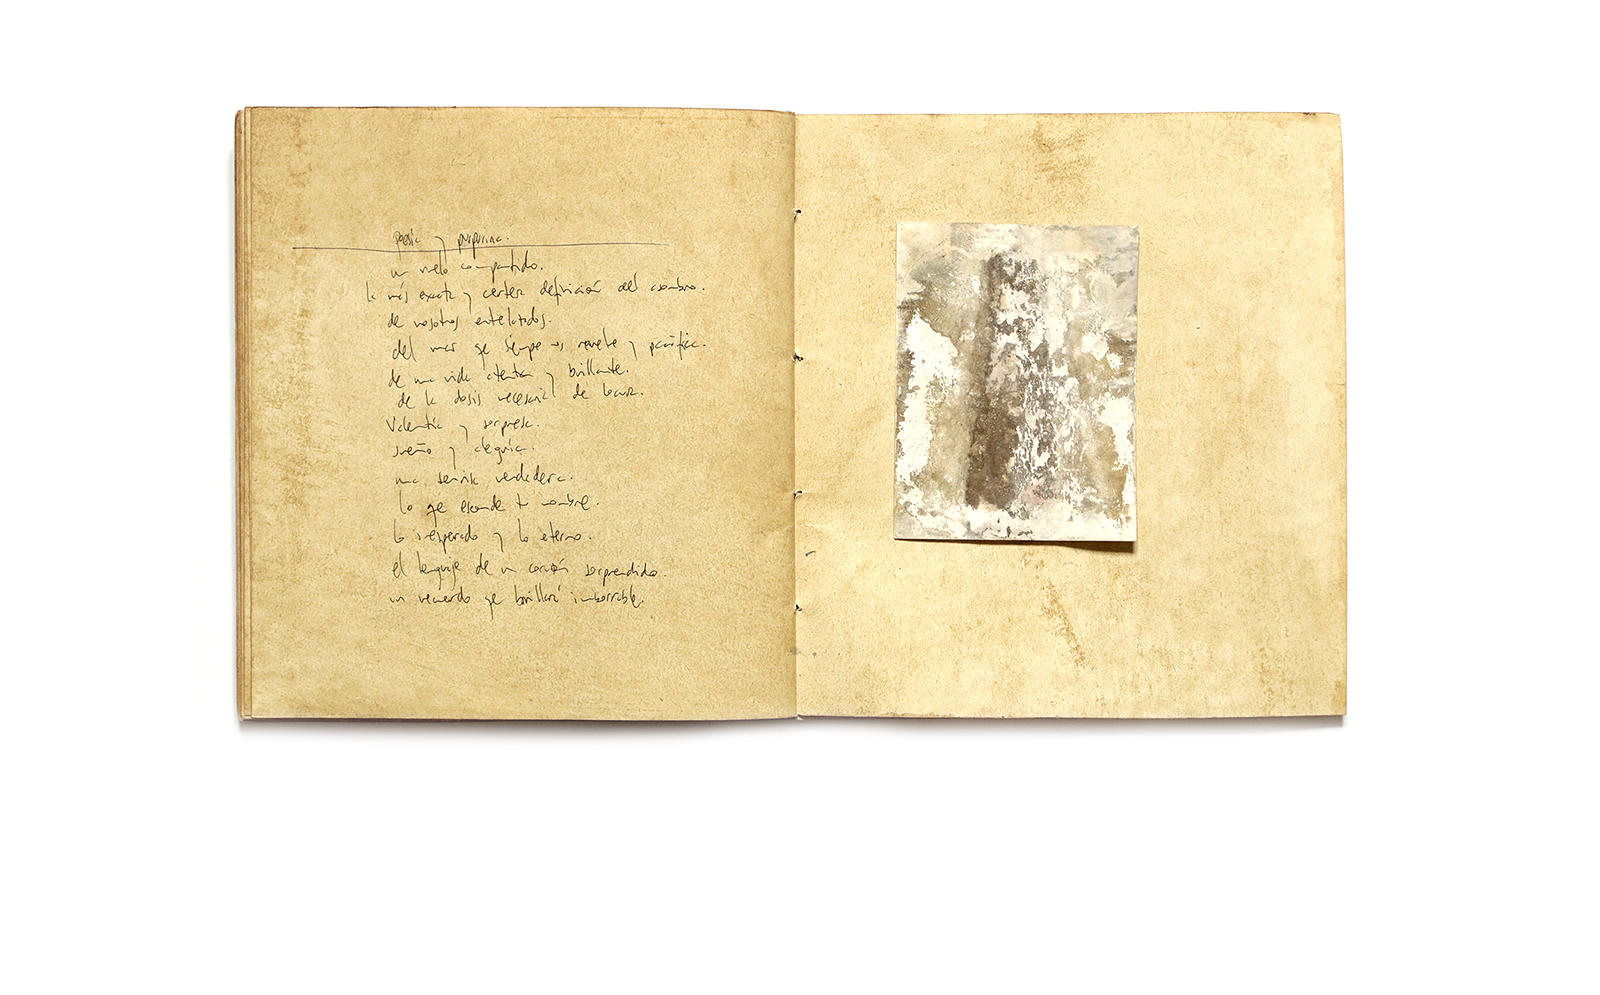 poesía y purpurina.
un vuelo compartido.
la más exacta y certera definición del asombro.
de nosotros entelados.
del mar que siempre nos revuelve y pacifica.
de una vida atenta y brillante.
de la dosis necesaria de locura.
Valentía y sorpresa.
sueño y alegría.
una sonrisa verdadera.
lo que esconde tu nombre.
lo inesperado y lo eterno.
el lenguaje de un corazón sorprendido.
un recuerdo que brillará imborrable.